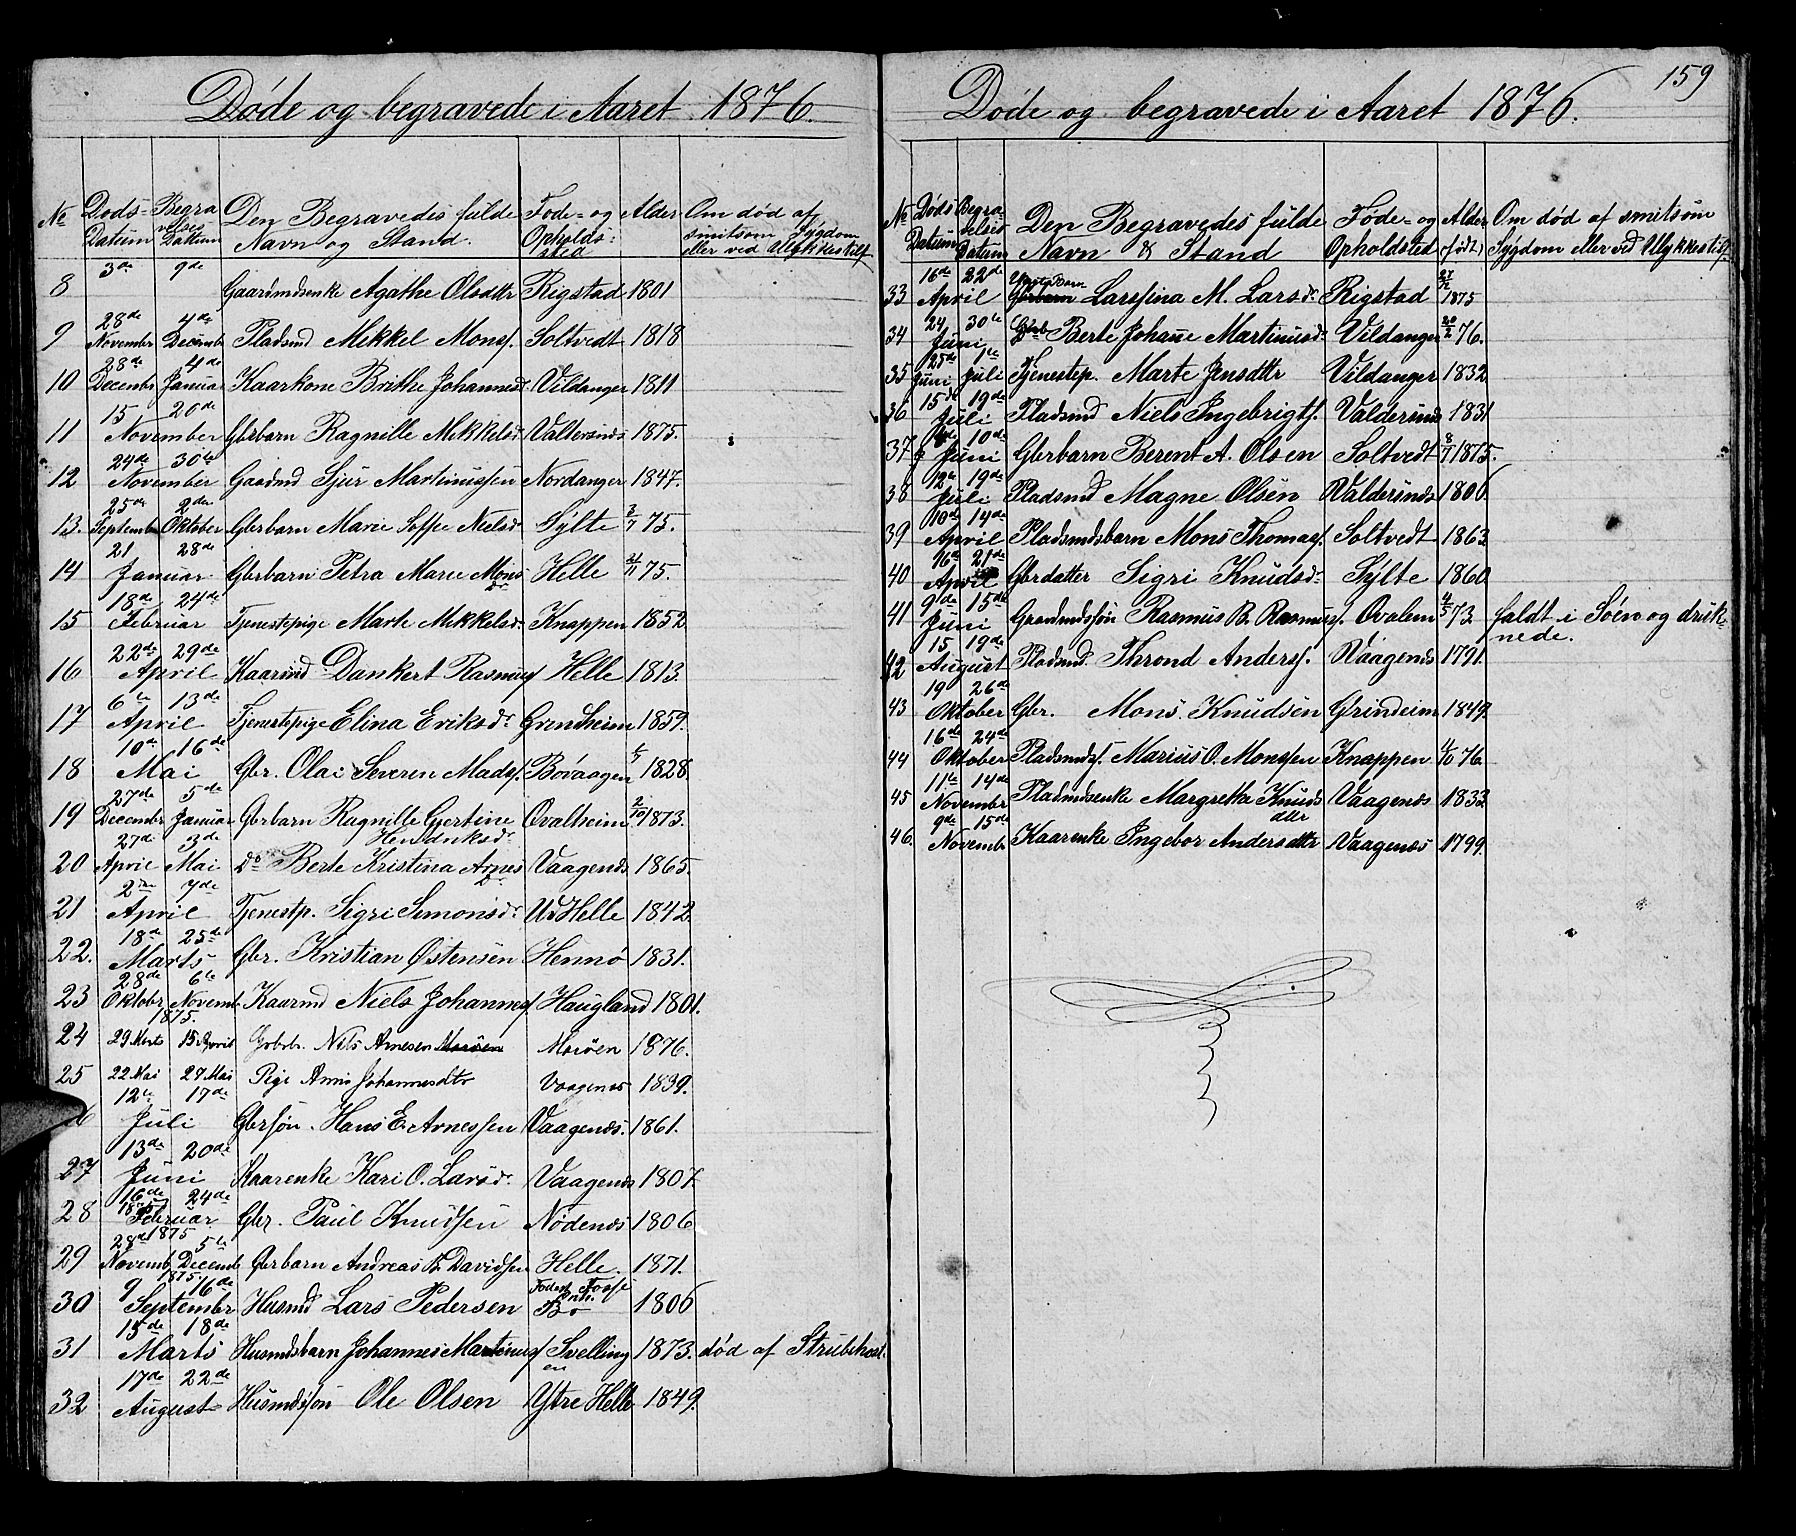 Døde og begravede i Aaret 1876.
No Døds-Datum Begravelses Datum Den Begravedes fulde Navn og Stand. Føde- og Opholdssted Alder Om død af smitsom Sygdom eller ved Ulykkestilf
8 3de 9de Gaardmdsenke Agathe Olsdttr Rigstad 1801
9 28de Novembr 4de Decembr Pladsmd Mikkel Monsf. Soltvedt 1818
10 28de Decembr 4de Januar Kaarkone Brithe Johannesd. Vildanger 1811
11 15 20de November Gbrbarn Ragnille Mikkelsd. Valdersnds 1875.
12 24de 30te November Gaadmd Sjur Martinussen Nordanger 1847.
13. 25de September 2den Oktober Gbrbarn Marie Soffie Nielsd. Sylte 3/7 75.
14 21 28de Januar Gbrbarn Petra Marie Mons Dr Helle 2/11 75.
15 18de 24de Februar Tjenestepige Marte Mikkelsd. Knappen 1852
16 22de 29de April Kaarmd Dankert Rasmusf Helle 1813.
17 6te 13de April Tjenestepige Elina Eriksdr Grendheim 1859.
18 10de 16de Mai Gbr. Olai Severen Madsf. Bøvaagen 1828.
19 27de Decembr 5de Januar Gbrbarn Ragnille Gjertine Hendriksdr Ovalheim 2/10 1873.
20 27de April 3de Mai Do Berte Kristina Arnes Dr Vaagenes 1865.
21 2den 7de April Tjenestp. Sigri Simonsdr Ud Helle 1842
22. 18de 25de Marts Gbr. Kristian Østensen Hennø 1831.
23 28de Oktobr 6te Novemb 1875. Kaarmd Niels Johannesf Haugland 1801.
24 29 Marts 15 April Grbrb. Nils Arnesen Marøen Marøen 1876.
25 22 Mai 27 Mai Pige Anni Johannesdtr Vaagenes 1839.
26 12te 17de Juli Gbrsøn. Hans E. Arnessen Vaagenes. 1861.
27 13de 20de Juni Kaarenke Kari O. Larsdr Vaagenes 1807.
28 16de 24de Februar Gbr. Paul Knudsen Nødenes 1806
29 28de Novemb 1875 5te Decemb Gbrbarn Andreas B. Davidsen Helle. 1871.
30 9 16de 1875 September Husmd Lars Pedersen Bø 1806
31 15de 18de Marts Husmdsbarn Johannes Martinusf Svellingen 1873. død af Strubehost.
32 17de 22de August Husmdssøn Ole Olsen Ytre Helle 1849.
159
Døde og begravede i Aaret 1876.
No Døds Datum Begravelses Datum Den Begravedes fulde Navn & Stand Føde- og Opholdsted Alder (født) Om død af smitsom Sygdom eller ved Ulykkestilf
33 16de 22de April Gbrbarn Larssina M. Larsdr Rigstad 27/12 1875
34 24 30te Juni Do Berte Johanne Martinusdr Vildanger 20/2 76.
35 25de Juni 1te Juli Tjenestep. Marte Jensdttr Vildanger 1832
36 15de 19de Juli Pladsmd Niels Ingebrigtf. Valdersnds 1831
37 10de Juni Gbrbarn Berent A. Olsen Soltvedt 8/7 1875.
38 12te 19de Juli Pladsmd Magne Olsen Valdersnds 1806
39 10de 14de April Pladsmdsbarn Mons Thomasf. Soltvedt 1863
40 16de 21de April Gbrdatter Sigri Knudsdr Sylte 1860
41 9de 15de Juni Graamdssøn Rasmus B. Rasmusf. Ovalem 4/5 73. faldt i Søen og druknede.
42 15 19de August Pladsmd. Thrond Andersf. Vaagenes 1791.
43 19 26de Oktober Gbr. Mons Knudsen Grindeim 1849.
44 16de 24de Oktober Pladsmdsf. Marius O. Monssen Knappen 4/10 76
45 11te 14de Novembr Pladmdsenke Margretha Knudsdttr Vaagenes 1833
46. 9de 15de Novemb Kaarenke Ingebor Andersdttr Vaagenes 1799.